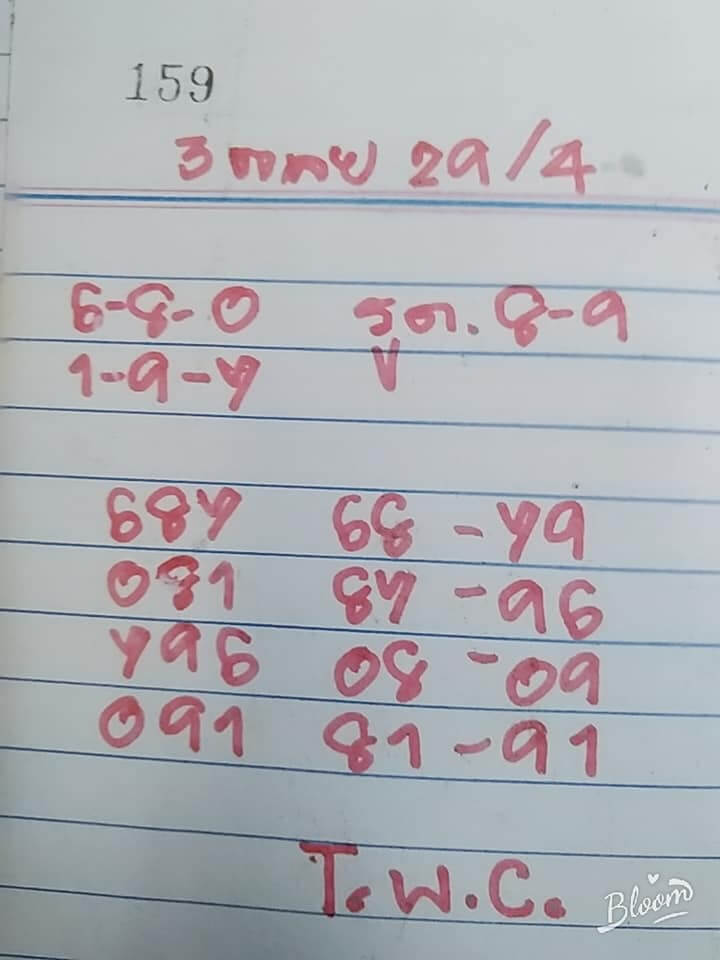 159
3 29/4
6-8-0 รูด. 8-9
1-9-4
684 68 - 49
081 84 - 96
496 08 - 09
091 81 - 91
T.W.C.
Bloom